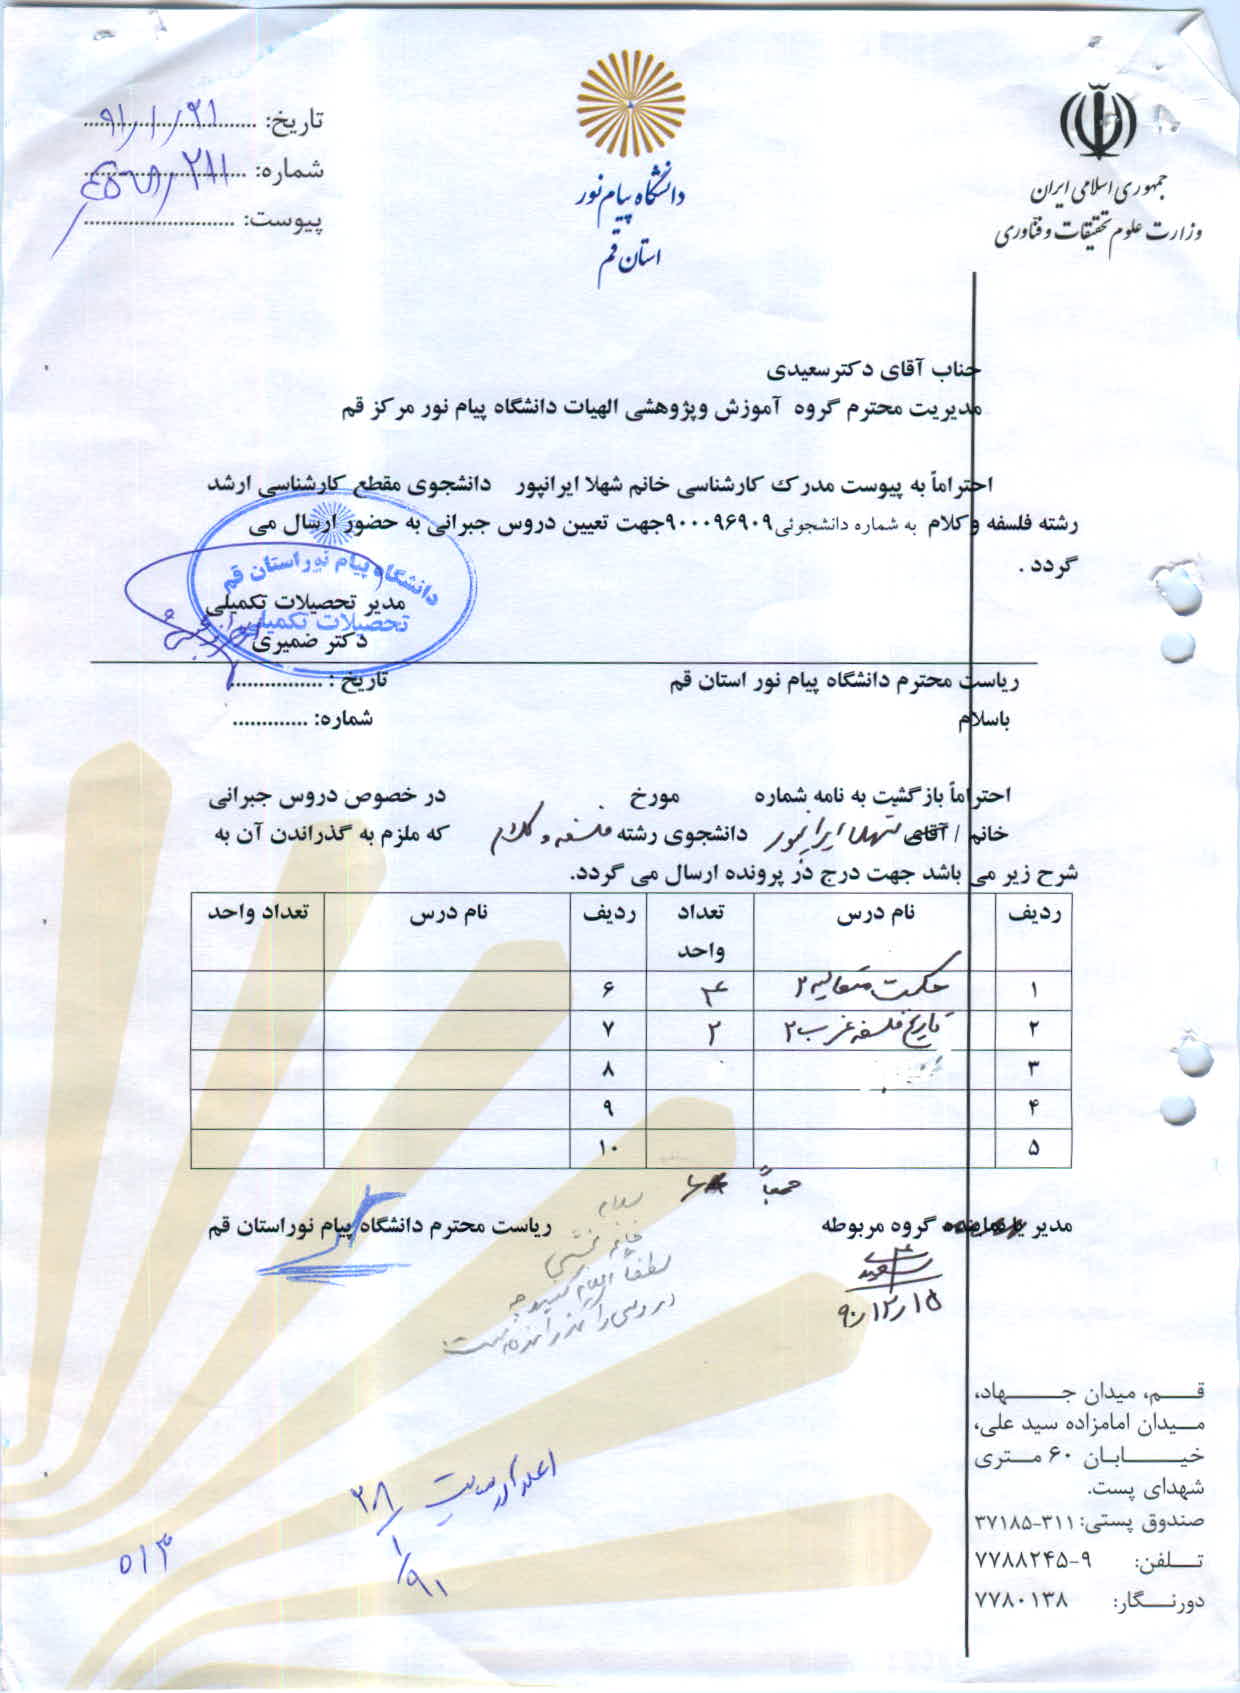 جمهوری اسلامی ایران
وزارت علوم تحقیقات و فناوری
دانشگاه پیام نور
استان قم
تاریخ: ۹۱/۱/۲۱
شماره: ۲۸۱۱
پیوست:
جناب آقای دکترسعیدی
مدیریت محترم گروه آموزش وپژوهشی الهیات دانشگاه پیام نور مرکز قم
احتراماً به پیوست مدرک کارشناسی خانم شهلا ایرانپور دانشجوی مقطع کارشناسی ارشد
رشته فلسفه وکلام به شماره دانشجوئی۹۰۰۰۹۶۹۰۹جهت تعیین دروس جبرانی به حضور ارسال می
گردد .
دانشگاه پیام نور استان قم
تحصیلات تکمیلی
مدیر تحصیلات تکمیلی
دکتر ضمیری
ریاست محترم دانشگاه پیام نور استان قم
تاریخ : ................
باسلام
شماره: .............
احتراماً بازگشت به نامه شماره مورخ در خصوص دروس جبرانی
خانم / آقای شهلا ایرانپور دانشجوی رشته فلسفه و کلام که ملزم به گذراندن آن به
شرح زیر می باشد جهت درج در پرونده ارسال می گردد.
ردیف نام درس تعداد واحد ردیف نام درس تعداد واحد
۱ حکمت متعالیه ۲ ۴ ۶
۲ تاریخ فلسفه غرب ۲ ۲ ۷
۳ ۸
۴ ۹
۵ ۱۰
جمعاً ۶
مدیر گروه مربوطه
ریاست محترم دانشگاه پیام نوراستان قم
سعیدی
۹۰/۱۲/۱۵
سلام
خانم
لطفاً اعلام کنید چه
دروسی را گذرانده است
۲۸/۱/۹۱
۵۱۳
قم، میدان جهاد،
میدان امامزاده سید علی،
خیابان ۶۰ متری
شهدای پست.
صندوق پستی: ۳۱۱-۳۷۱۸۵
تلفن: ۹-۷۷۸۸۲۴۵
دورنگار: ۷۷۸۰۱۳۸